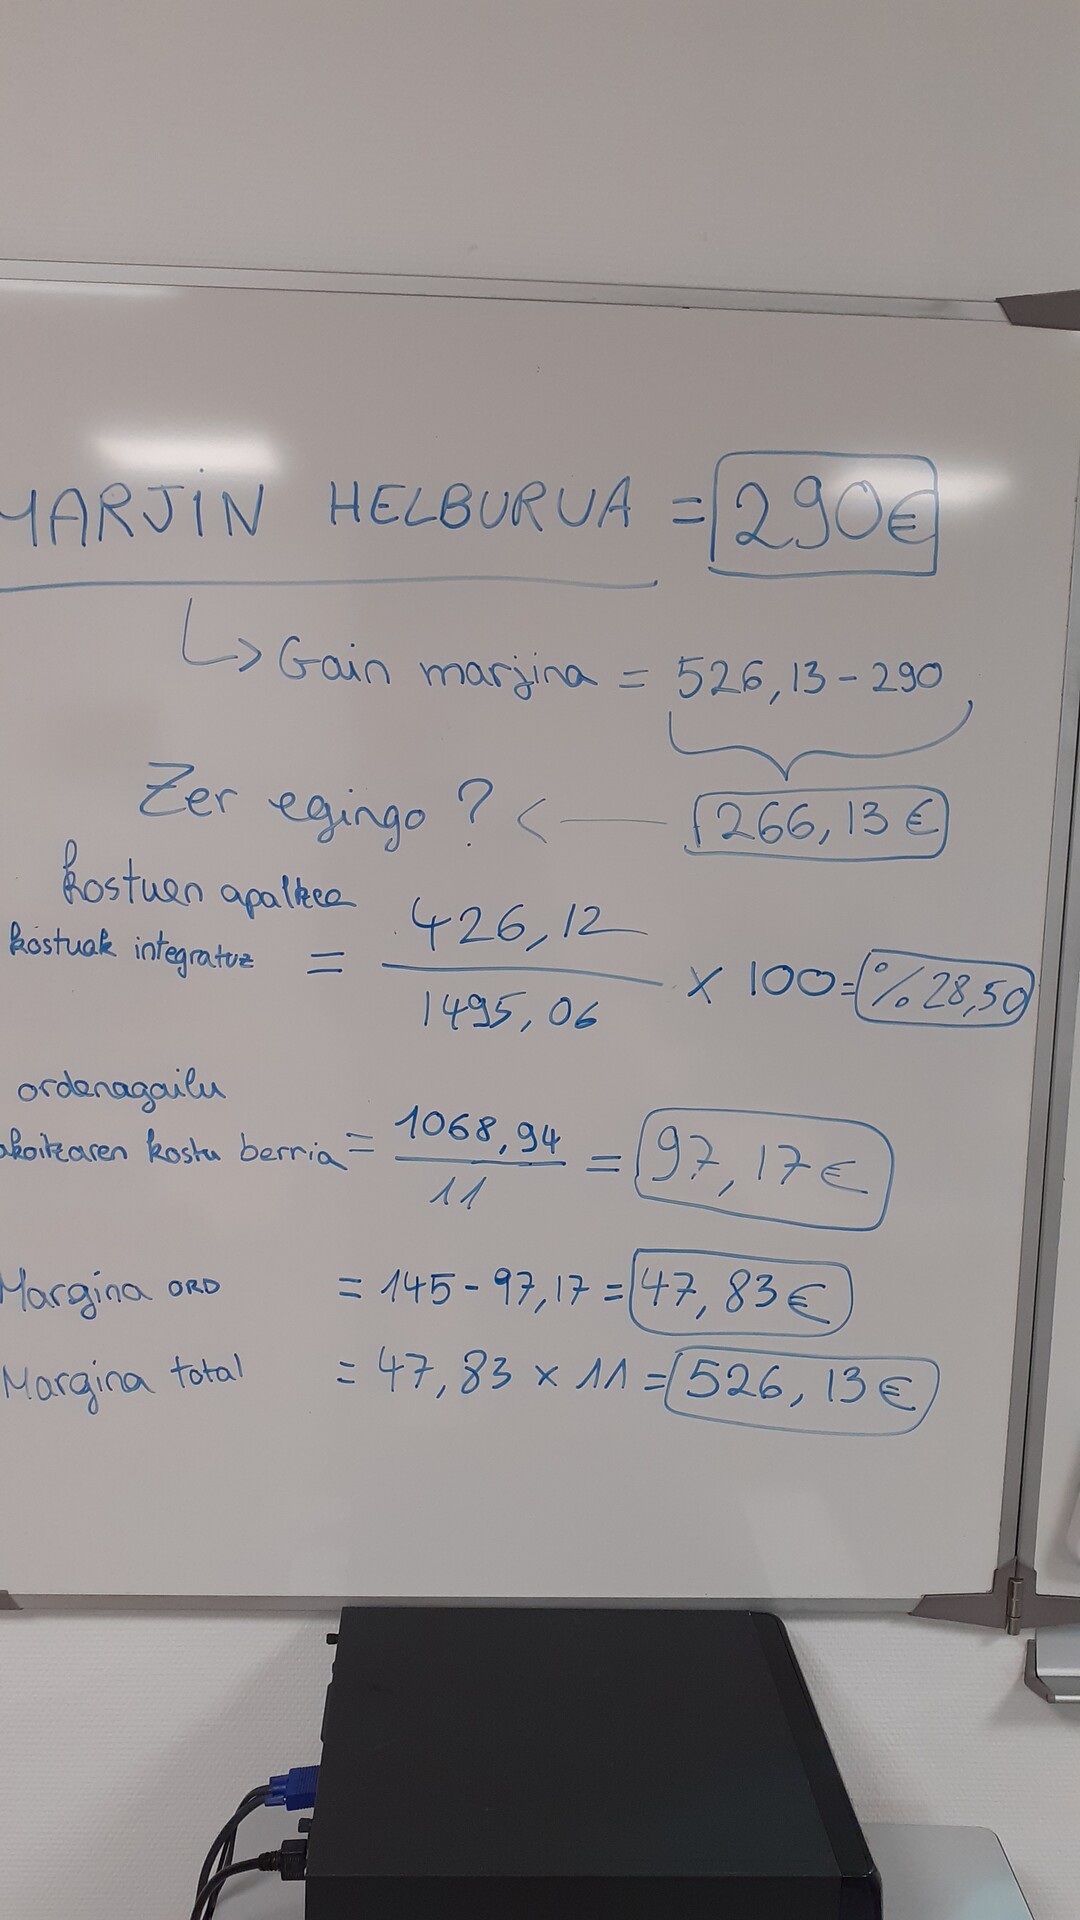 MARJIN HELBURUA = 290€
↳ Gain marjina = 526,13 - 290
Zer egingo? < — 266,13 €
kostuen apalkea
kostuak integratuz = 426,12 / 1495,06 x 100 = % 28,50
ordenagailu
akoitzaren kostu berria = 1068,94 / 11 = 97,17€
Margina ORD = 145 - 97,17 = 47,83€
Margina total = 47,83 x 11 = 526,13€